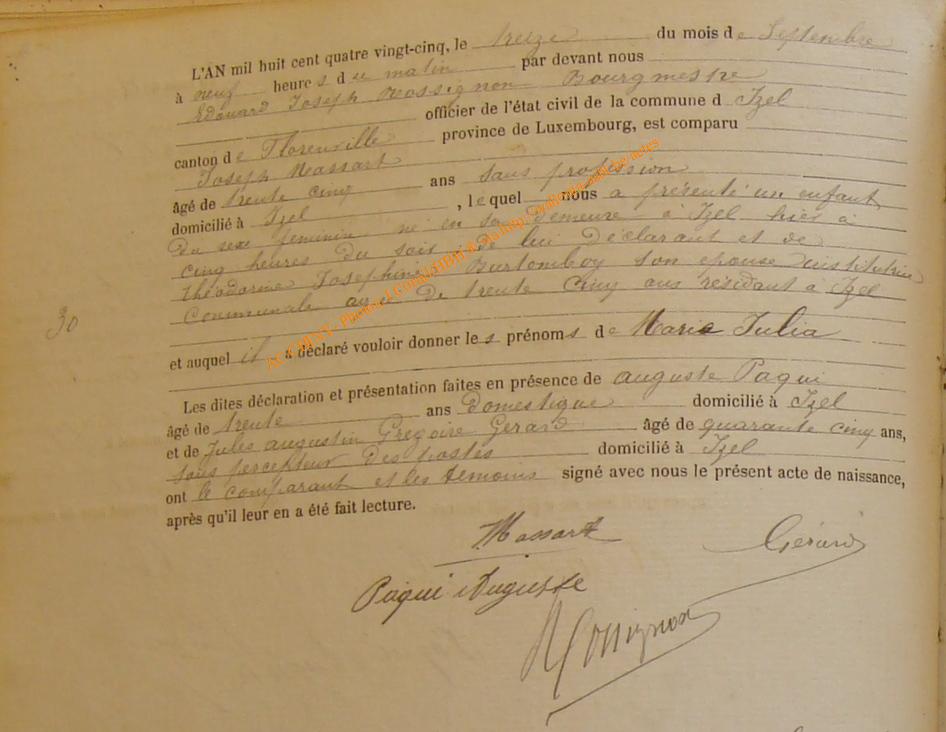 L'AN mil huit cent quatre vingt-cinq, le treize du mois de Septembre
à neuf heures du matin par devant nous
Edouard Joseph Rossignon Bourgmestre
officier de l'état civil de la commune d Izel
canton de Florenville province de Luxembourg, est comparu
Joseph Massart
âgé de trente cinq ans sans profession
domicilié à Izel, lequel nous a présenté un enfant
du sexe féminin né en sa demeure à Izel hier à
cinq heures du soir de lui déclarant et de
Théodorine Josephine Burtomboy son épouse institutrice
Communale agée de trente cinq ans résidant à Izel
30
et auquel il a déclaré vouloir donner les prénoms de Marie Julia
Les dites déclaration et présentation faites en présence de auguste Paqui
âgé de trente ans Domestique domicilié à Izel
et de Jules augustin Gregoire Gerard âgé de quarante cinq ans,
sous percepteur des postes domicilié à Izel
ont le comparant et les témoins signé avec nous le présent acte de naissance,
après qu'il leur en a été fait lecture.
Massart
Gérard
Paqui Auguste
Rossignon